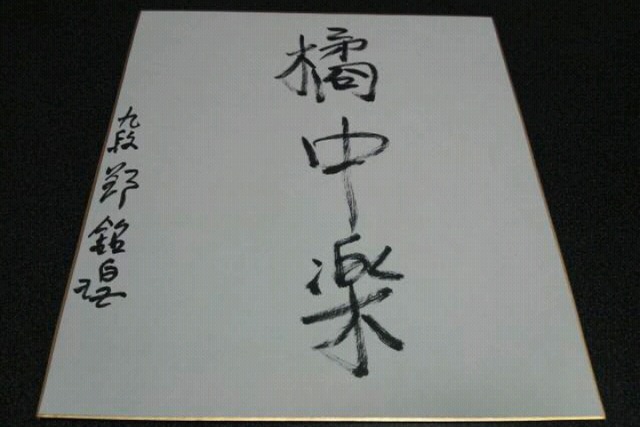 橘中楽
九段 鄭銘瑝